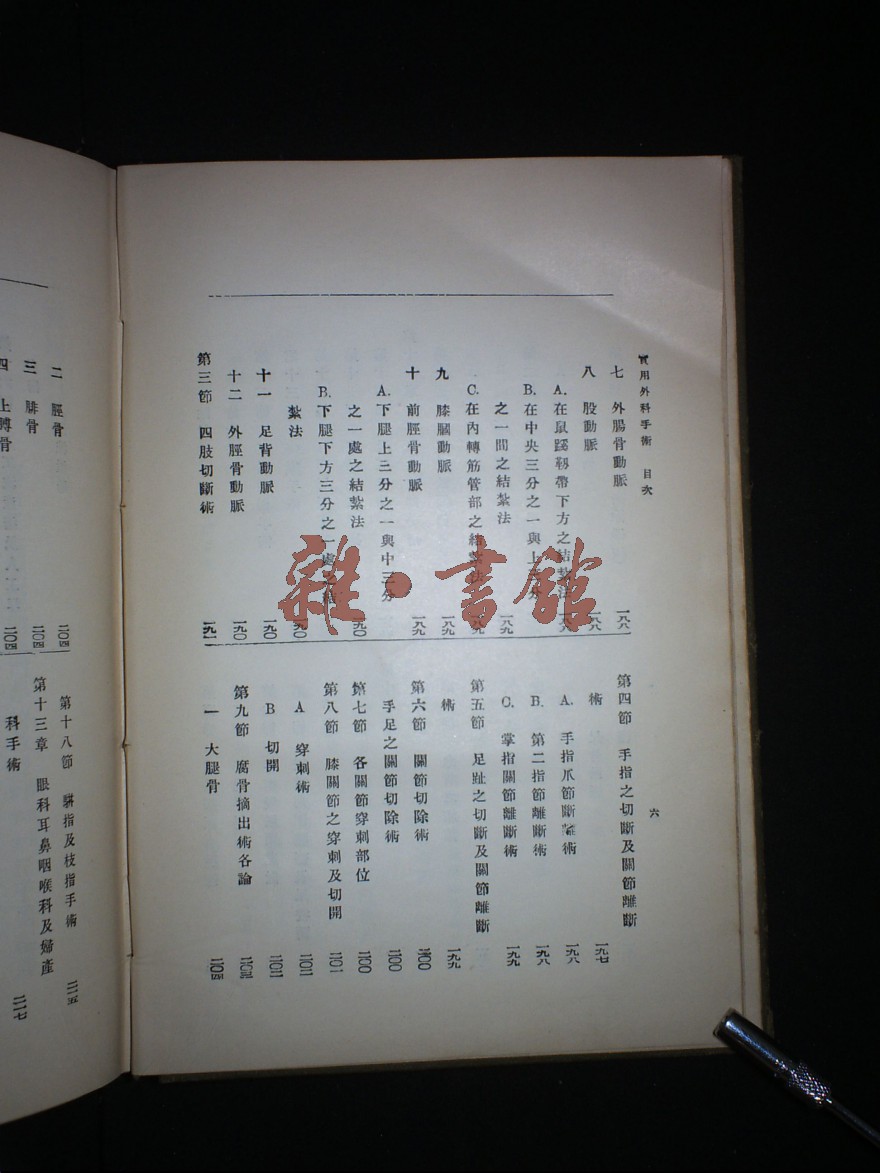 實用外科手術 目次
七 外腸骨動脈 一八八
八 股動脈 一八八
A. 在鼠蹊靱帶下方之結紮法 一八八
B. 在中央三分之一與上三分
之一間之結紮法 一八九
C. 在內轉筋管部之結紮法 一八九
九 膝膕動脈 一八九
十 前脛骨動脈 一八九
A. 下腿上三分之一與中三分
之一處之結紮法 一九〇
B. 下腿下方三分之一處之結
紮法 一九〇
十一 足背動脈 一九〇
十二 外脛骨動脈 一九〇
第三節 四肢切斷術 一九一
六
第四節 手指之切斷及關節離斷
術 一九七
A. 手指爪節斷離術 一九八
B. 第二指節離斷術 一九八
C. 掌指關節離斷術 一九九
第五節 足趾之切斷及關節離斷
術 一九九
第六節 關節切除術 二〇〇
手足之關節切除術 二〇〇
第七節 各關節穿刺部位 二〇〇
第八節 膝關節之穿刺及切開 二〇二
A 穿刺術 二〇二
B 切開 二〇二
第九節 腐骨摘出術各論
一 大腿骨 二〇四
二 脛骨 二〇四
三 腓骨 二〇四
四 上膊骨 二〇四
第十八節 駢指及枝指手術 二一五
第十三章 眼科耳鼻咽喉科及婦產
科手術 二一七
雜·書館